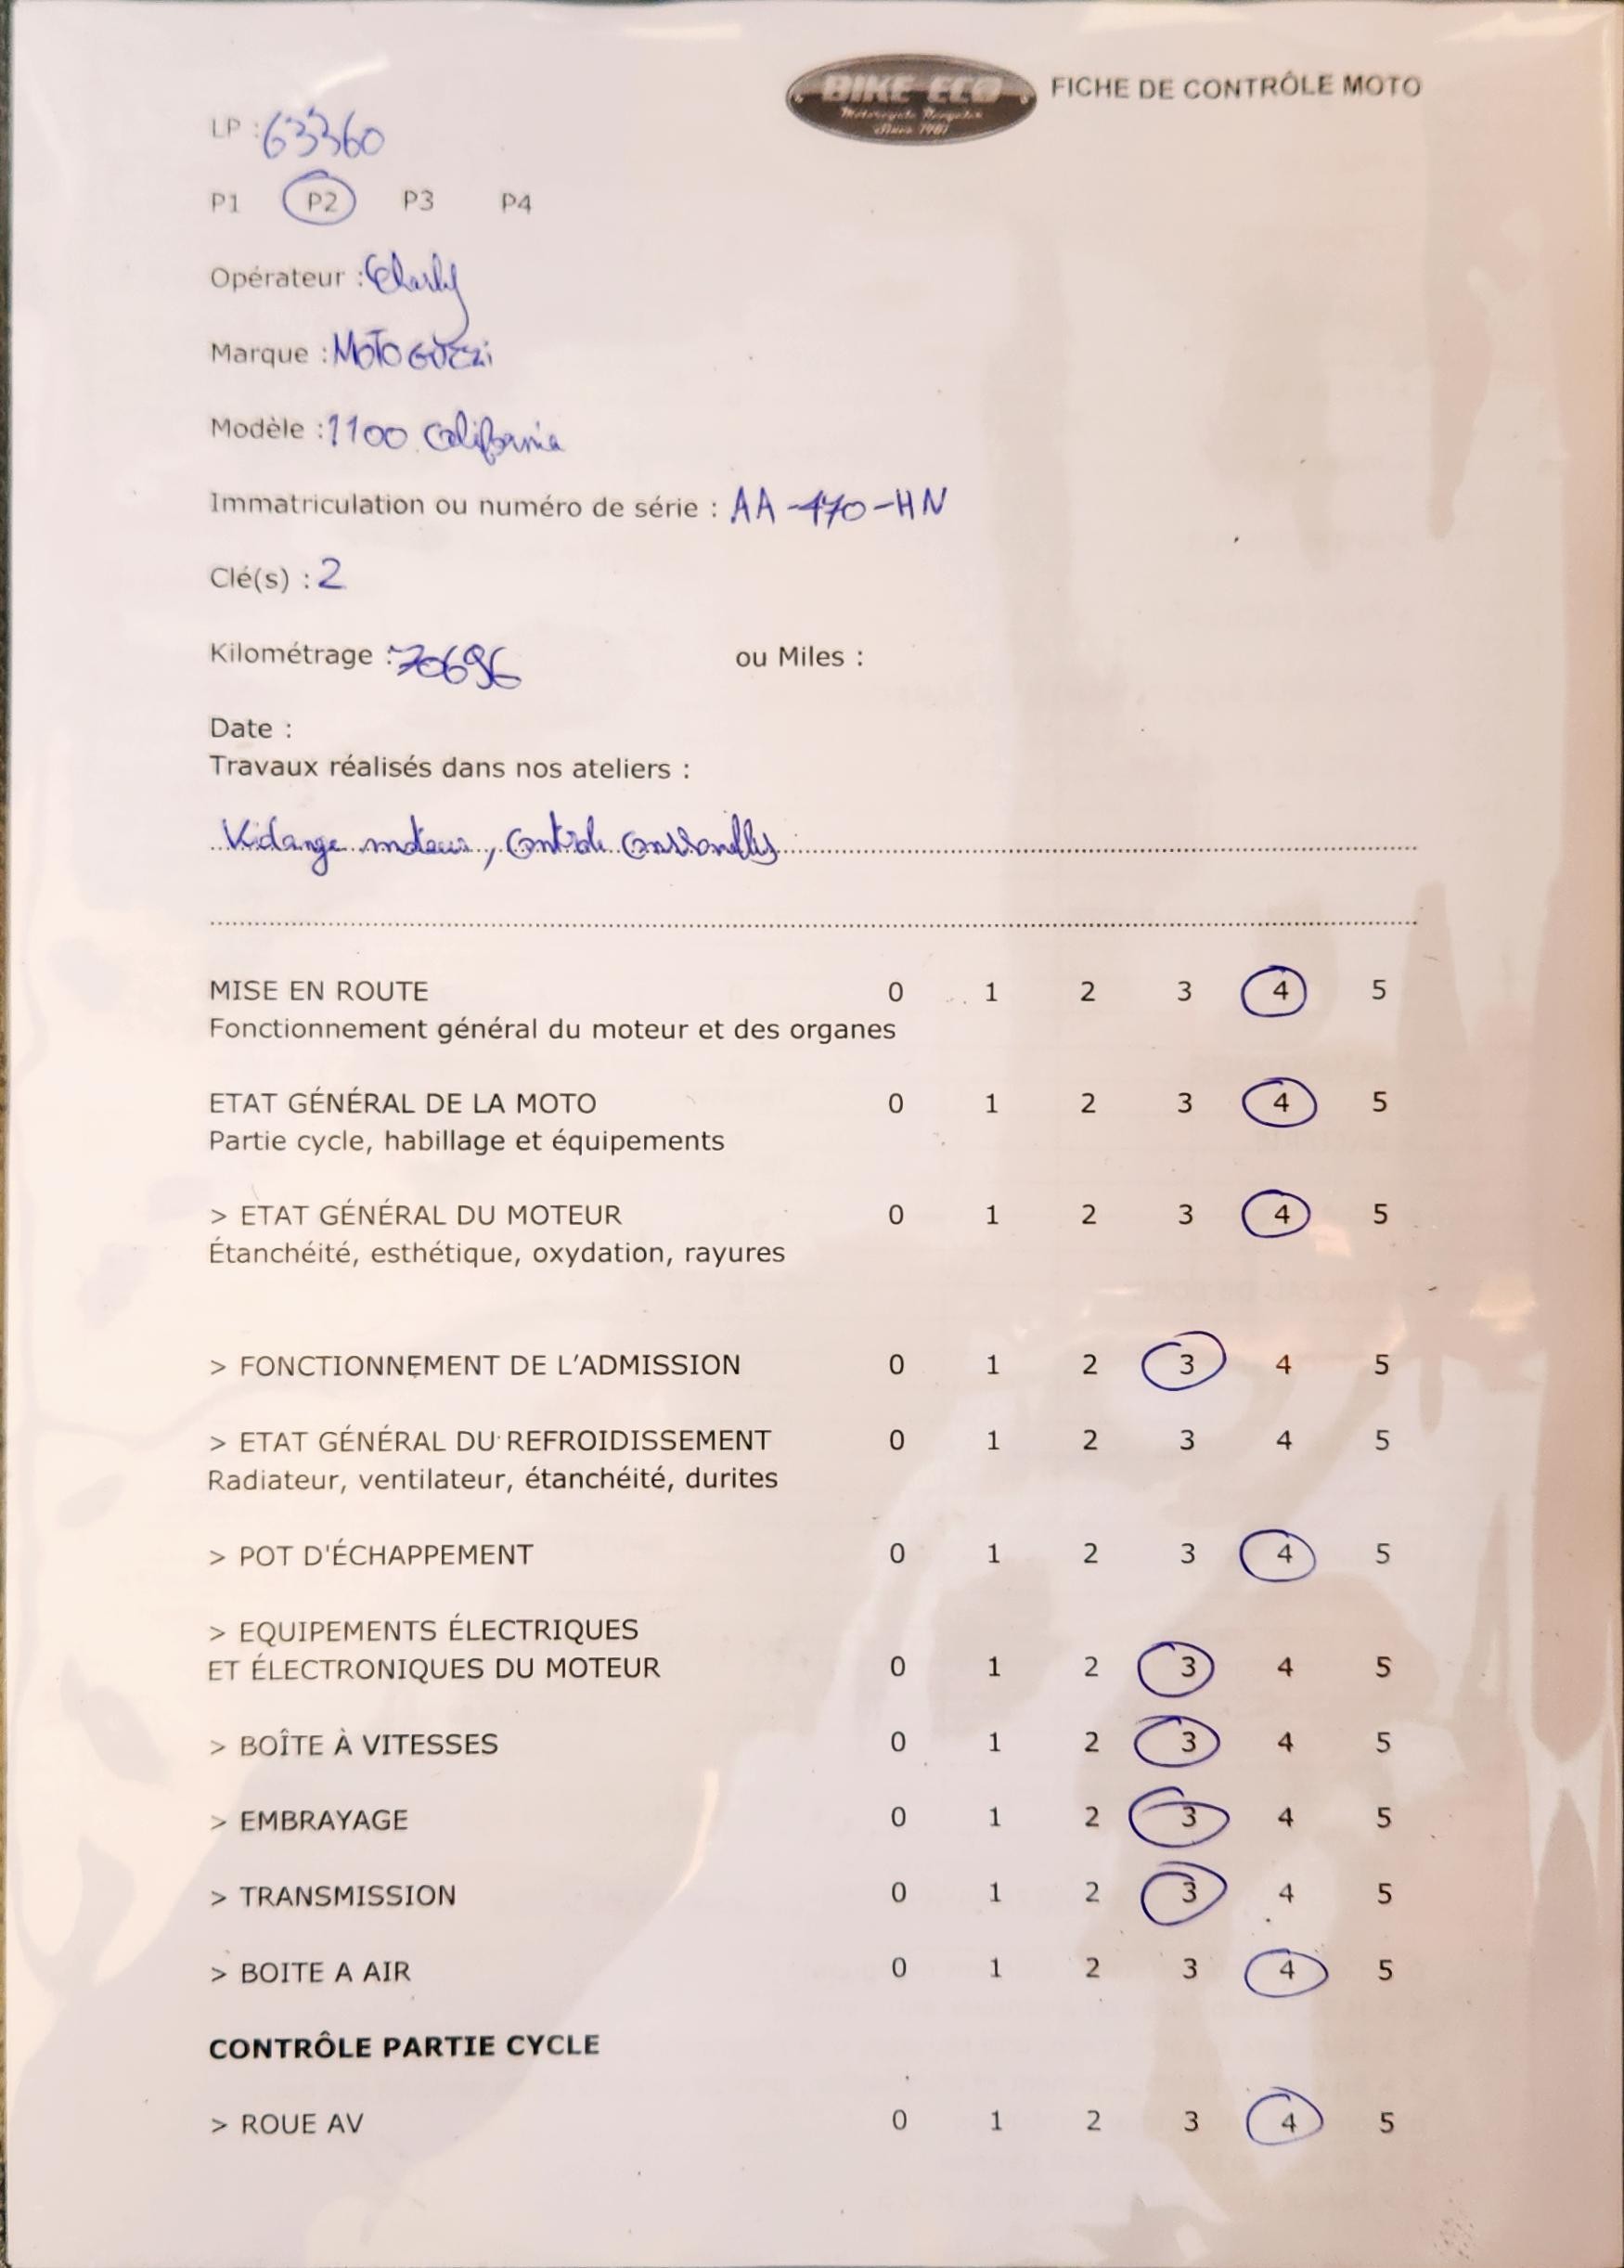 BIKE-ECO
Motorcycle Recycler
Since 1981
FICHE DE CONTRÔLE MOTO
LP : 63360
P1 P2 P3 P4
Opérateur : Charly
Marque : MOTO GUZZi
Modèle : 1100 California
Immatriculation ou numéro de série : AA-470-HN
Clé(s) : 2
Kilométrage : 70696 ou Miles :
Date :
Travaux réalisés dans nos ateliers :
Vidange moteur, Contrôle
MISE EN ROUTE 0 1 2 3 4 5
Fonctionnement général du moteur et des organes
ETAT GÉNÉRAL DE LA MOTO 0 1 2 3 4 5
Partie cycle, habillage et équipements
> ETAT GÉNÉRAL DU MOTEUR 0 1 2 3 4 5
Étanchéité, esthétique, oxydation, rayures
> FONCTIONNEMENT DE L'ADMISSION 0 1 2 3 4 5
> ETAT GÉNÉRAL DU REFROIDISSEMENT 0 1 2 3 4 5
Radiateur, ventilateur, étanchéité, durites
> POT D'ÉCHAPPEMENT 0 1 2 3 4 5
> EQUIPEMENTS ÉLECTRIQUES
ET ÉLECTRONIQUES DU MOTEUR 0 1 2 3 4 5
> BOÎTE À VITESSES 0 1 2 3 4 5
> EMBRAYAGE 0 1 2 3 4 5
> TRANSMISSION 0 1 2 3 4 5
> BOITE A AIR 0 1 2 3 4 5
CONTRÔLE PARTIE CYCLE
> ROUE AV 0 1 2 3 4 5